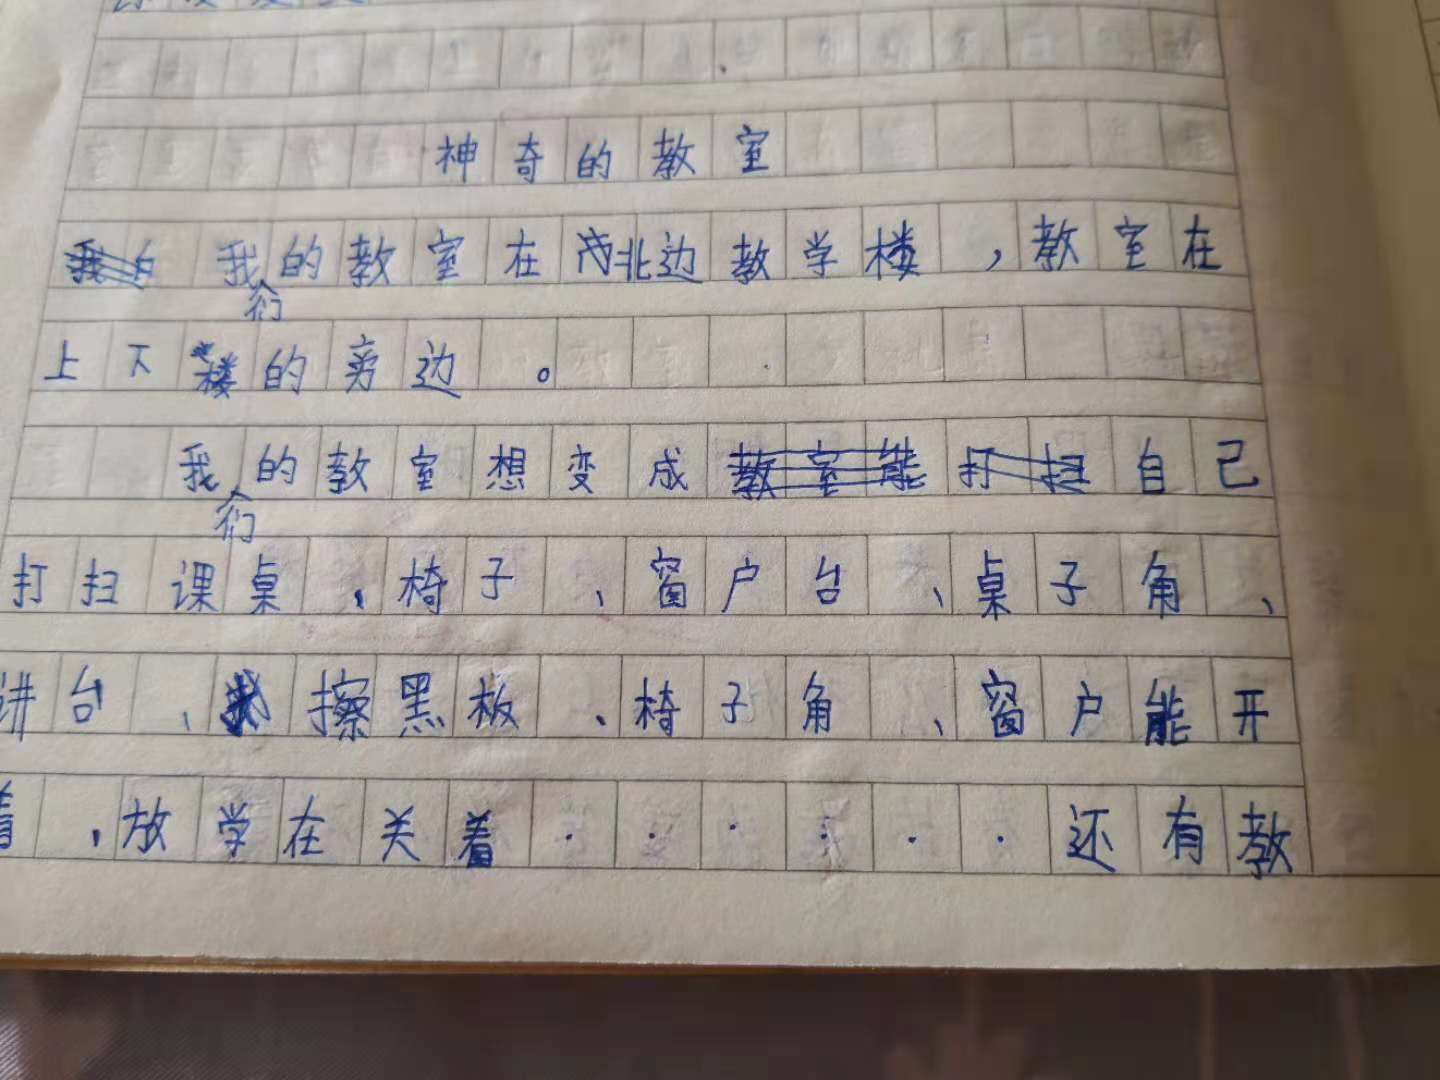 神奇的教室
我们的教室在北边教学楼，教室在
上下楼的旁边。
我们的教室想变成自己
打扫课桌、椅子、窗户台、桌子角、
讲台、擦黑板、椅子角、窗户能开
着，放学在关着······还有教